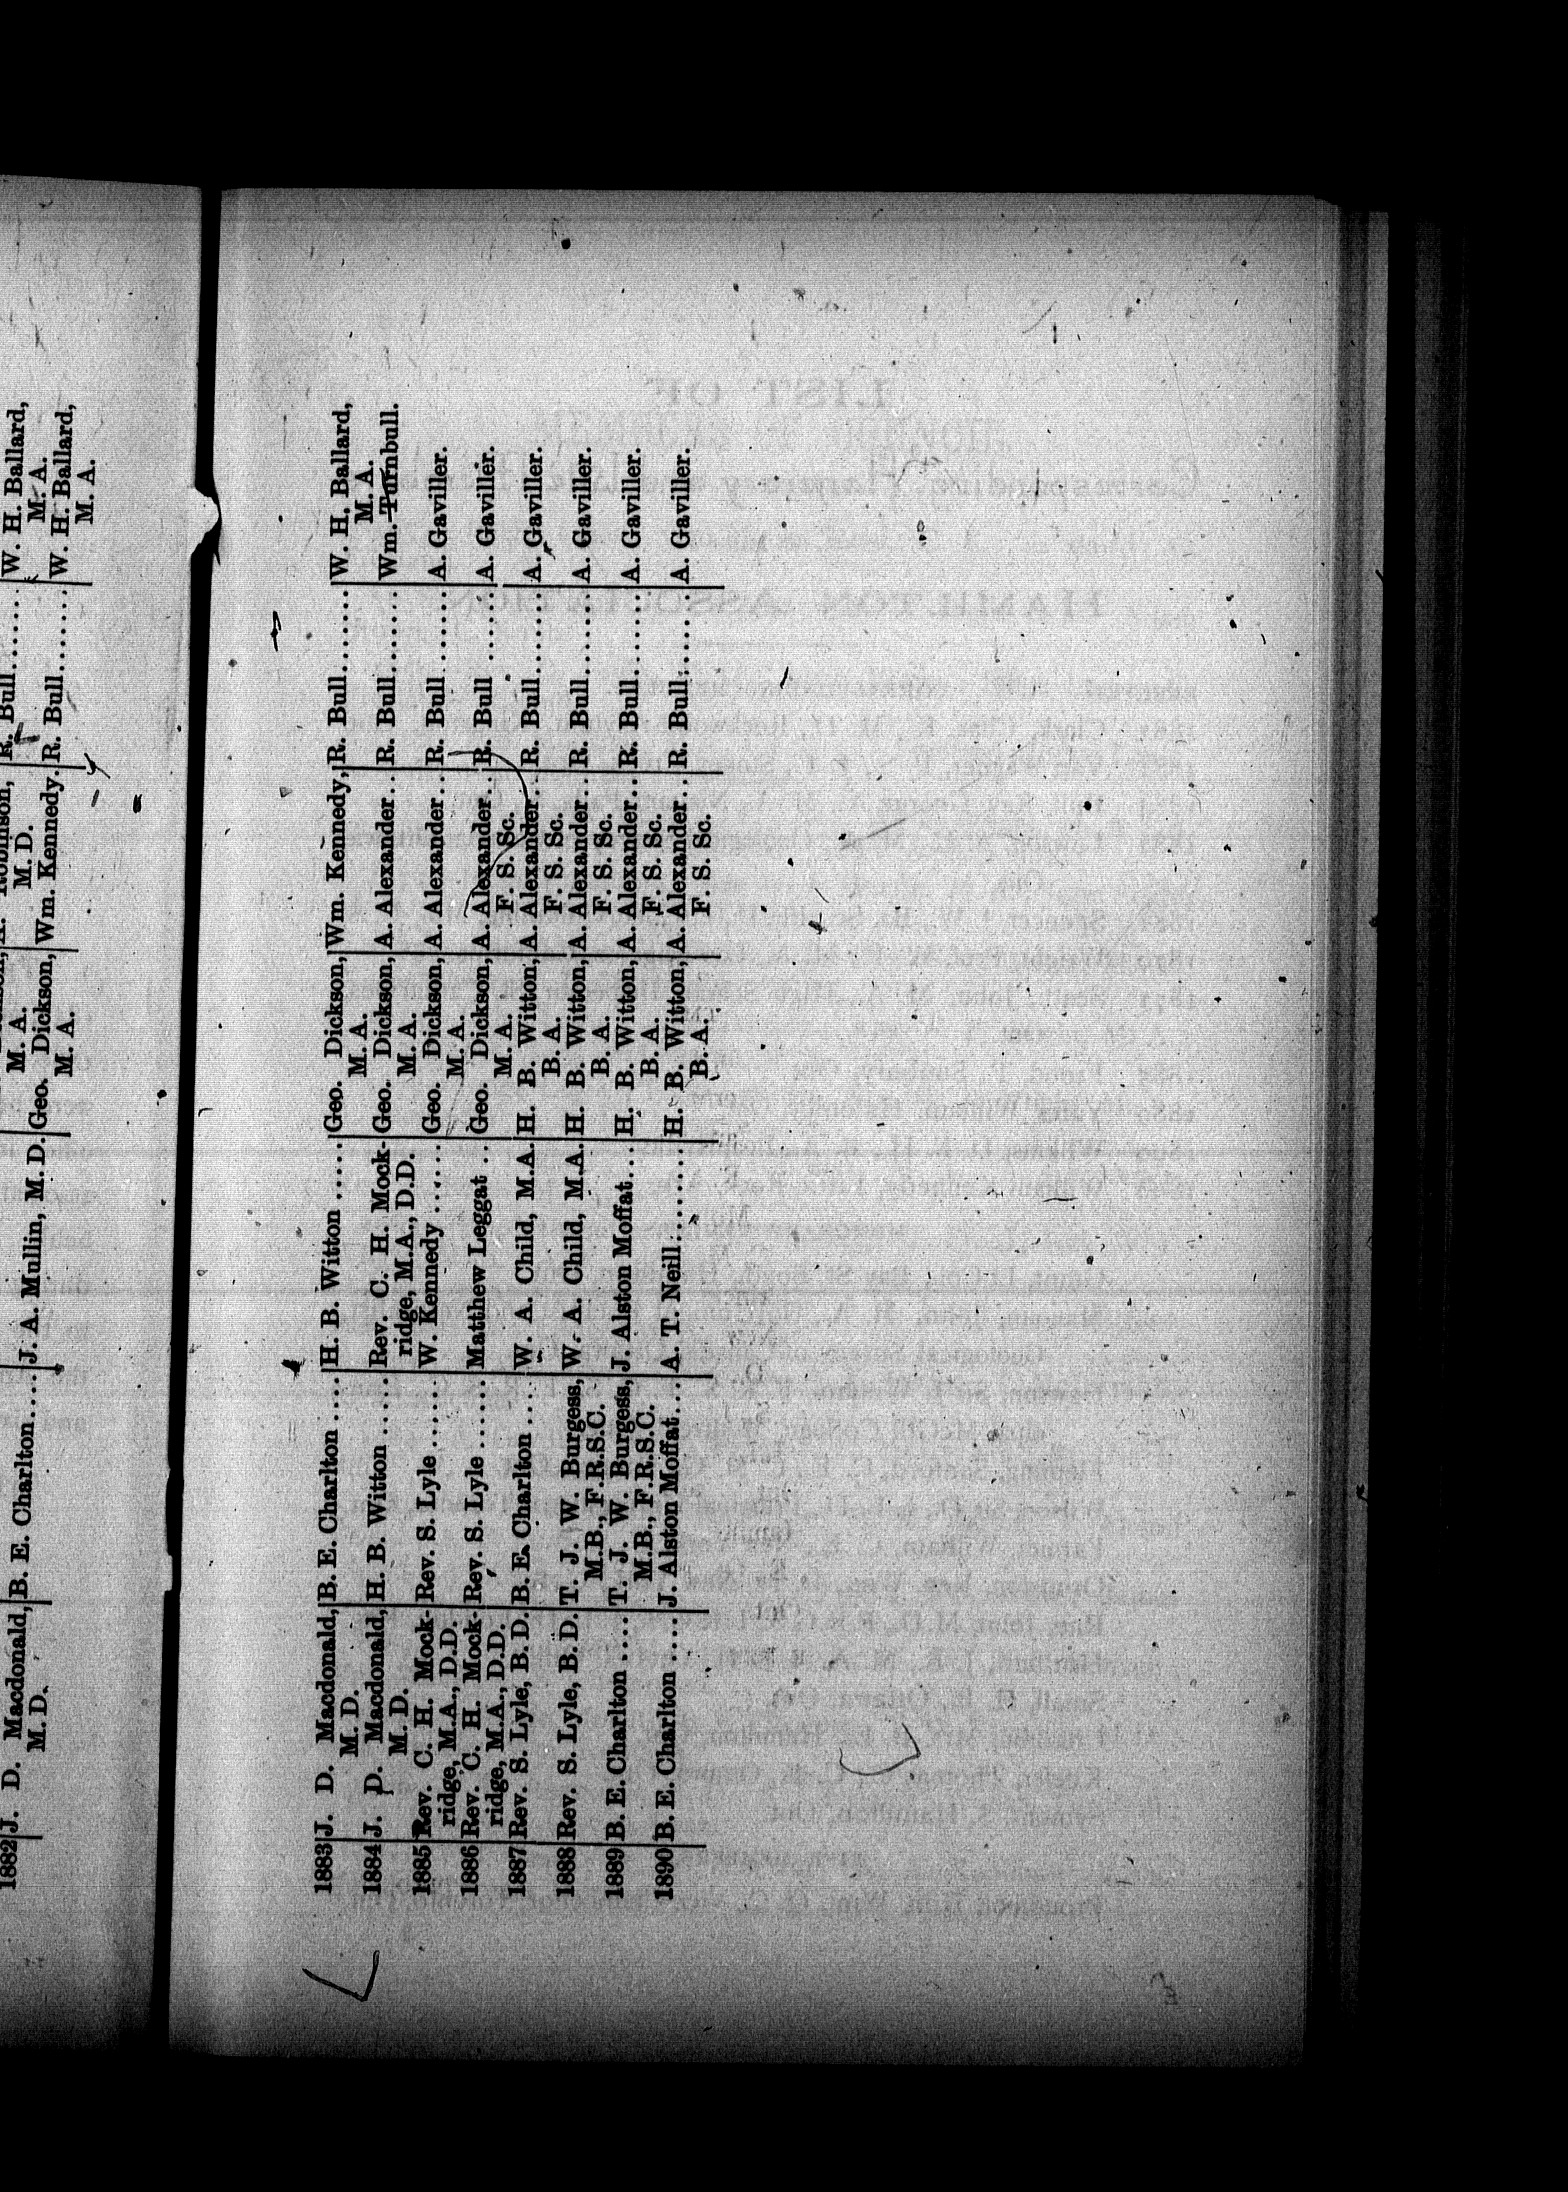 1882 J. D. Macdonald, B. E. Charlton.... J. A. Mullin, M. D. Geo. Dickson, Wm. Kennedy. R. Bull....... W. H. Ballard,
M. D. M. A. M. A.
1883 J. D. Macdonald, B. E. Charlton .... H. B. Witton ...... Geo. Dickson, Wm. Kennedy, R. Bull........ W. H. Ballard,
M. D. M. A. M. A.
1884 J. D. Macdonald, H. B. Witton ..... Rev. C. H. Mock- Geo. Dickson, A. Alexander.. R. Bull........ Wm. Turnbull.
M. D. ridge, M.A., D.D. M. A.
1885 Rev. C. H. Mock- Rev. S. Lyle ....... W. Kennedy ...... Geo. Dickson, A. Alexander.. R. Bull ....... A. Gaviller.
ridge, M.A., D.D. M. A.
1886 Rev. C. H. Mock- Rev. S. Lyle ....... Matthew Leggat ... Geo. Dickson, A. Alexander.. R. Bull ...... A. Gaviller.
ridge, M.A., D.D. M. A. F. S. Sc.
1887 Rev. S. Lyle, B. D. B. E. Charlton .... W. A. Child, M.A. H. B. Witton, A. Alexander.. R. Bull........ A. Gaviller.
B. A. F. S. Sc.
1888 Rev. S. Lyle, B. D. T. J. W. Burgess, W. A. Child, M.A. H. B. Witton, A. Alexander.. R. Bull........ A. Gaviller.
M.B., F.R.S.C. B. A. F. S. Sc.
1889 B. E. Charlton .... T. J. W. Burgess, J. Alston Moffat... H. B. Witton, A. Alexander.. R. Bull........ A. Gaviller.
M.B., F.R.S.C. B. A. F. S. Sc.
1890 B. E. Charlton .... J. Alston Moffat.... A. T. Neill......... H. B. Witton, A. Alexander.. R. Bull....... A. Gaviller.
B. A. F. S. Sc.